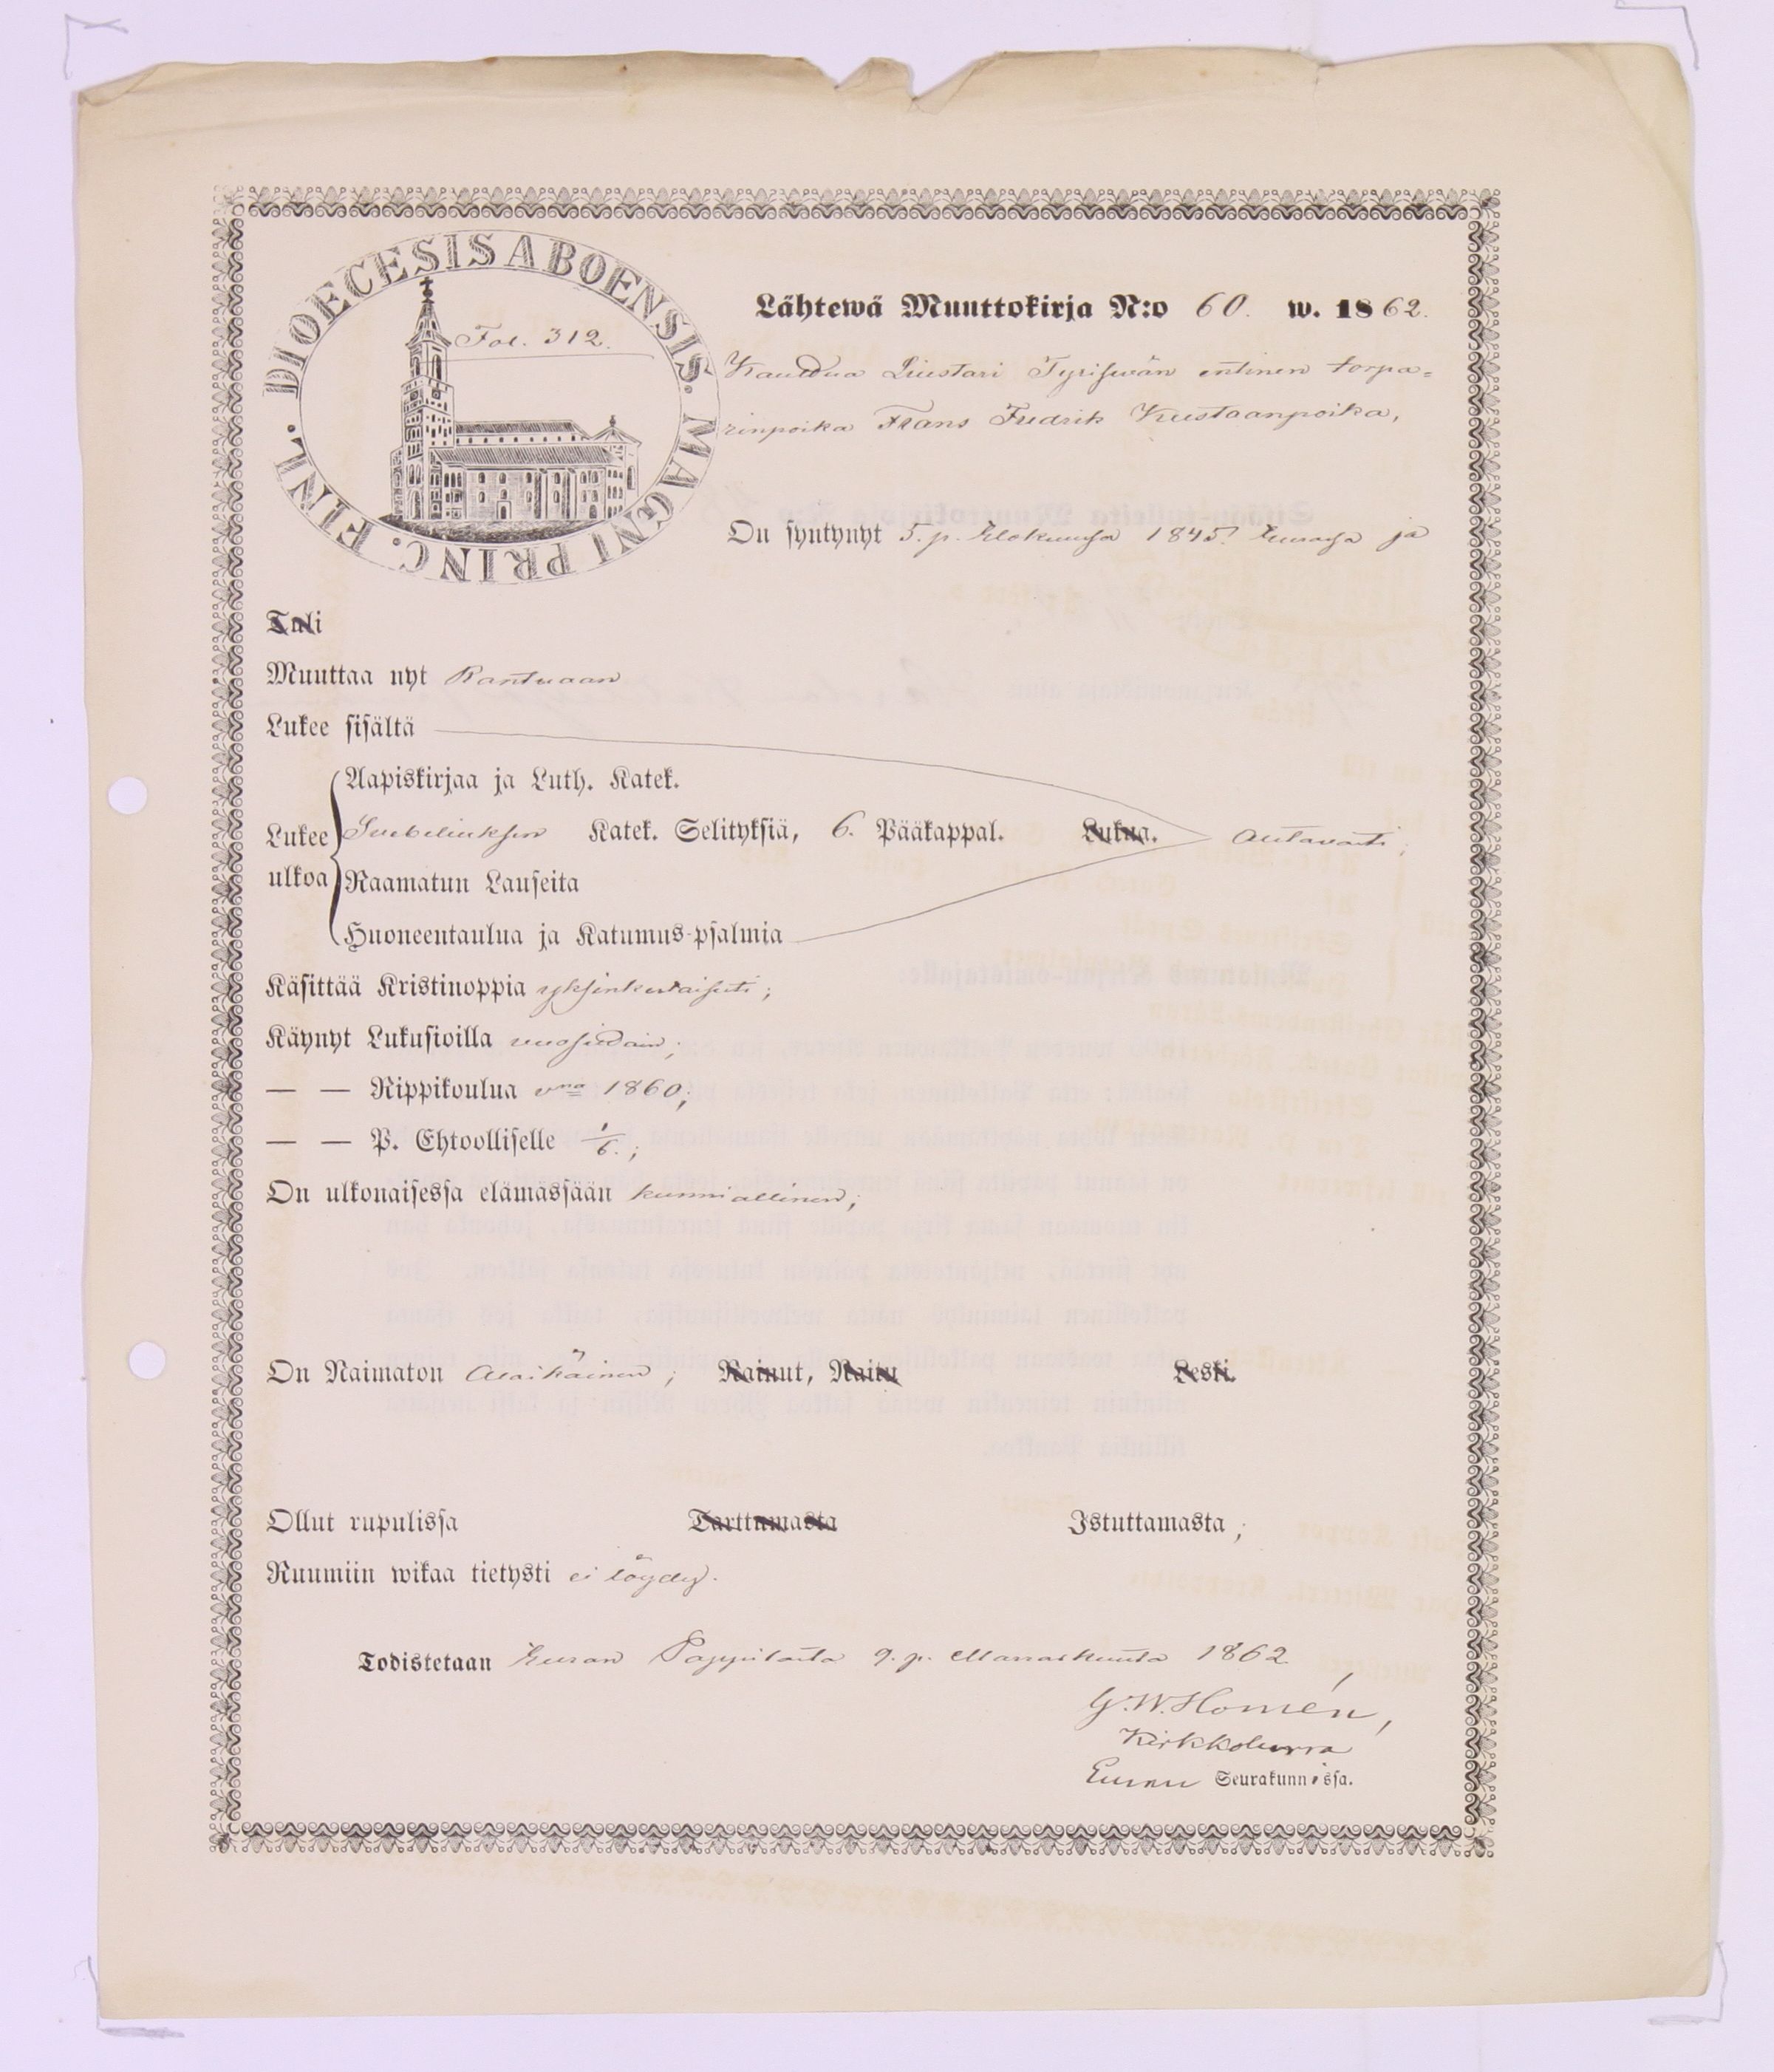 DIOECESIS ABOENSIS. MAGNI PRINC. FINL.
Fol. 312.
Lähtewä Muuttokirja N:o 60. w. 1862.
Kauttua Liustari Tyrisevän entinen torpa=
rinpoika Frans Fredrik Kustaanpoika,
On syntynyt 5. p. Elokuussa 1845 Eurassa ja
Tuli
Muuttaa nyt Rantuaan
Lukee sisältä
Aapiskirjaa ja Luth. Katek.
Lukee Svebeliuksen Katek. Selityksiä, 6. Pääkappal. Lukua. auttavasti;
ulkoa Raamatun Lauseita
Huoneentaulua ja Katumus-psalmia
Käsittää Kristinoppia yksinkertaisesti;
Käynyt Lukusioilla vuosittain;
— — Rippikoulua vna 1860;
— — P. Ehtoolliselle 1/6.;
On ulkonaisessa elämässään kunniallinen;
On Naimaton Alaikäinen; Nainut, Naitu Leski.
Ollut rupulissa Tarttumasta Istuttamasta;
Ruumiin wikaa tietysti ei löydy.
Todistetaan Euran Pappilasta 9. p. Marraskuuta 1862
G. W. Homén,
Kirkkoherra
Euran Seurakunnissa.